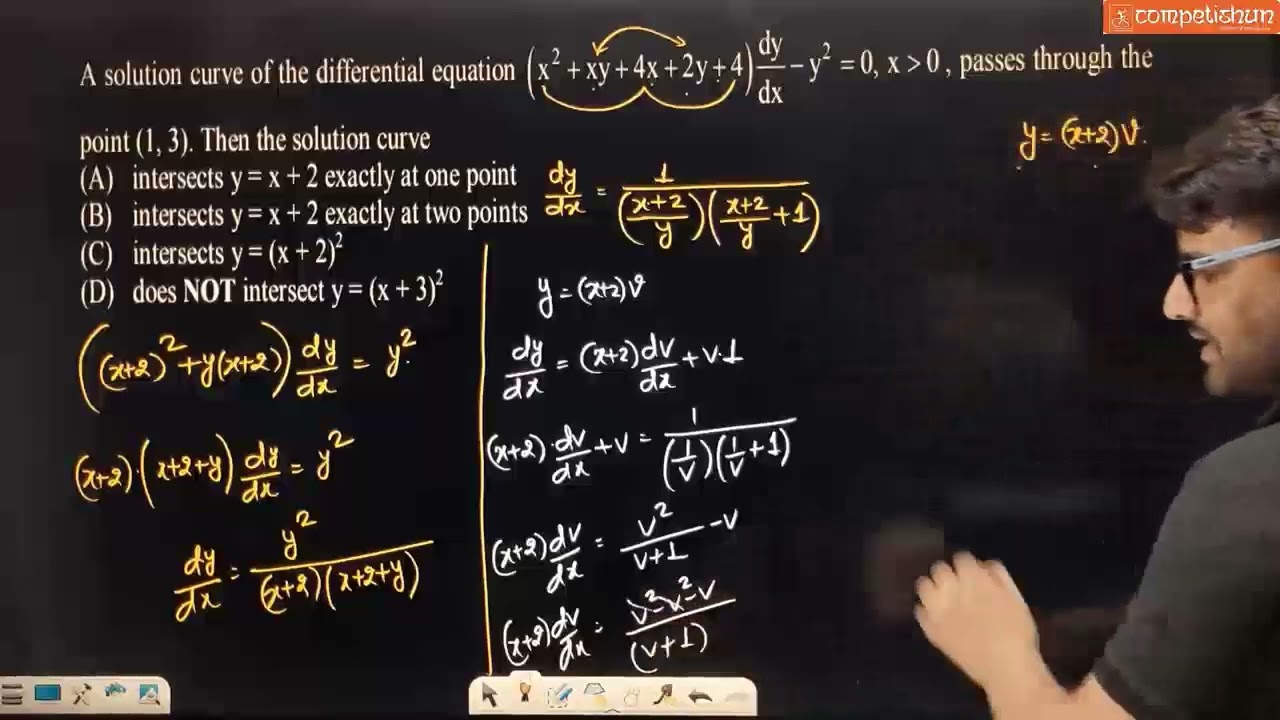 competishun
A solution curve of the differential equation (x² + xy + 4x + 2y + 4) dy/dx − y² = 0, x > 0 , passes through the
point (1, 3). Then the solution curve
(A) intersects y = x + 2 exactly at one point
(B) intersects y = x + 2 exactly at two points
(C) intersects y = (x + 2)²
(D) does NOT intersect y = (x + 3)²
y = (x+2) v.
dy/dx = 1/((x+2)/y)((x+2)/y + 1)
((x+2)² + y(x+2)) dy/dx = y².
(x+2)·(x+2+y) dy/dx = y²
dy/dx = y²/(x+2)(x+2+y)
y = (x+2) v
dy/dx = (x+2) dv/dx + v·1
(x+2)·dv/dx + v = 1/(1/v)(1/v + 1)
(x+2) dv/dx = v²/v+1 − v
(x+2) dv/dx = v² − v² − v/(v+1)